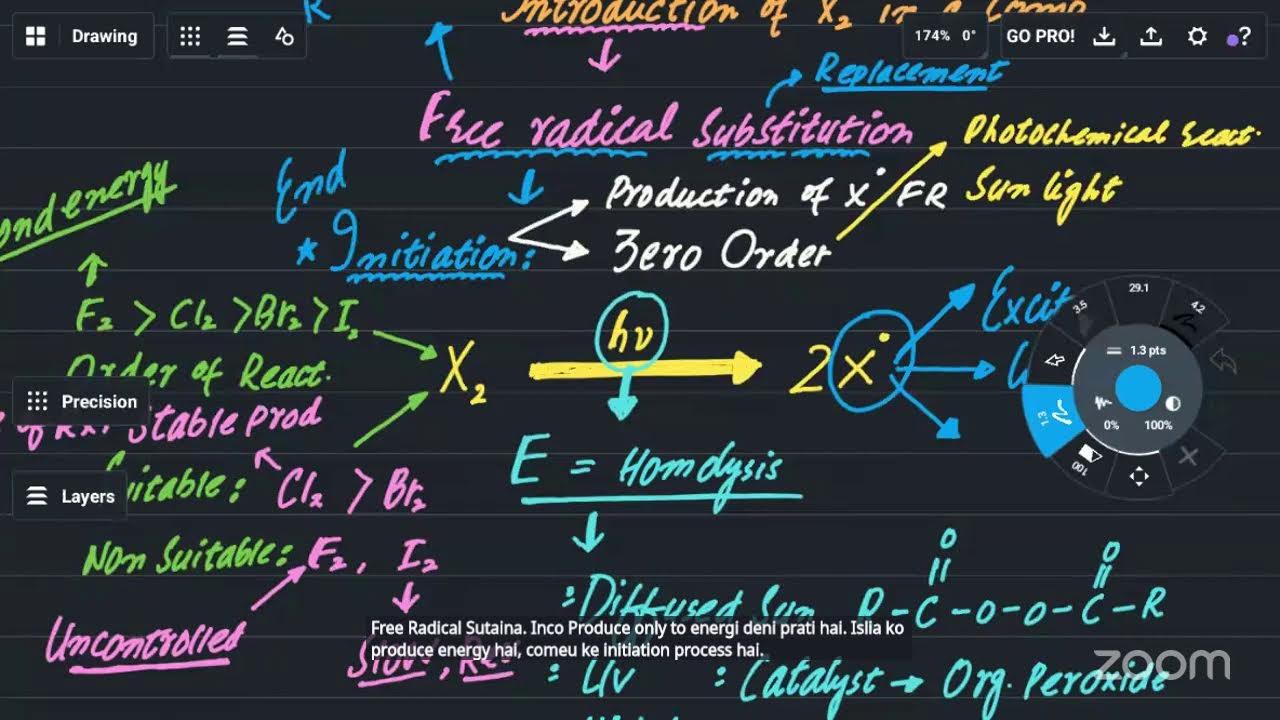 R
Introduction of X₂ in a Comp
Drawing
174% 0°
GO PRO!
?
Replacement
Free radical Substitution
Photochemical react.
Sun light
ond energy
End
* Initiation:
Production of X• FR
Zero Order
F₂ > Cl₂ > Br₂ > I₂
Order of React.
X₂
hν
2X•
Excit
29.1
3.5
4.2
1.3 pts
1.3
0%
100%
100
Precision
of Rxn Stable Prod
E = Homolysis
Layers
uitable: Cl₂ > Br₂
Non Suitable: F₂, I₂
Uncontrolled
Slow, Rev
: Diffused Sun
O O
|| ||
R-C-O-O-C-R
Free Radical Sutaina. Inco Produce only to energi deni prati hai. Islia ko
produce energy hai, comeu ke initiation process hai.
: UV
: Catalyst → Org. Peroxide
zoom